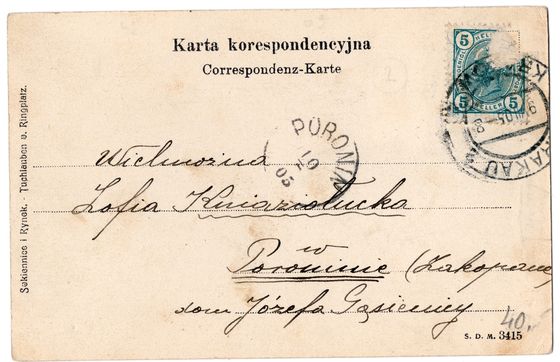 Karta korespondencyjna
Correspondenz-Karte
5 HELLER 5
5 HELLER 5
KRAKAU
PORONIN
10
05
Wielmożna
Zofia Kniaziołucka
w
Poroninie (Zakopane
dom Józefa Gąsienicy
40.-
Sukiennice i Rynek. - Tuchlauben u. Ringplatz.
S. D. M. 3415